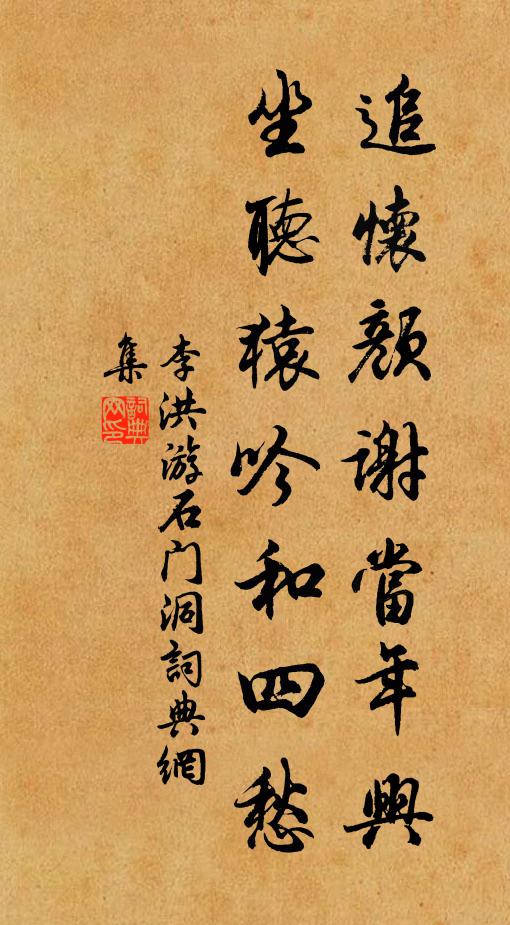 追懷顏謝當年興
坐聽猿吟和四愁
李洪游石门洞詞典網
集
詞典
网印